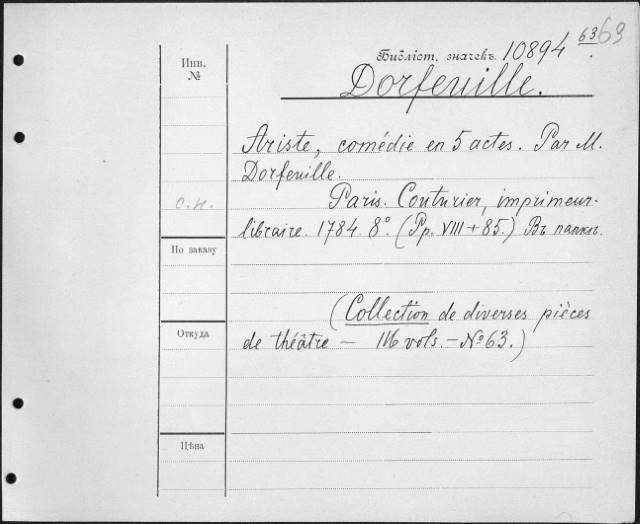 63 63
Библіот. значекъ. 10894
Инв.
№
Dorfeuille.
Ariste, comédie en 5 actes. Par M.
Dorfeuille.
с.н.
Paris. Couturier, imprimeur-
libraire. 1784. 8°. (Pp. VIII + 85.) Въ папкѣ.
По заказу
(Collection de diverses pièces
Откуда
de théâtre — 116 vols. — № 63.)
Цѣна